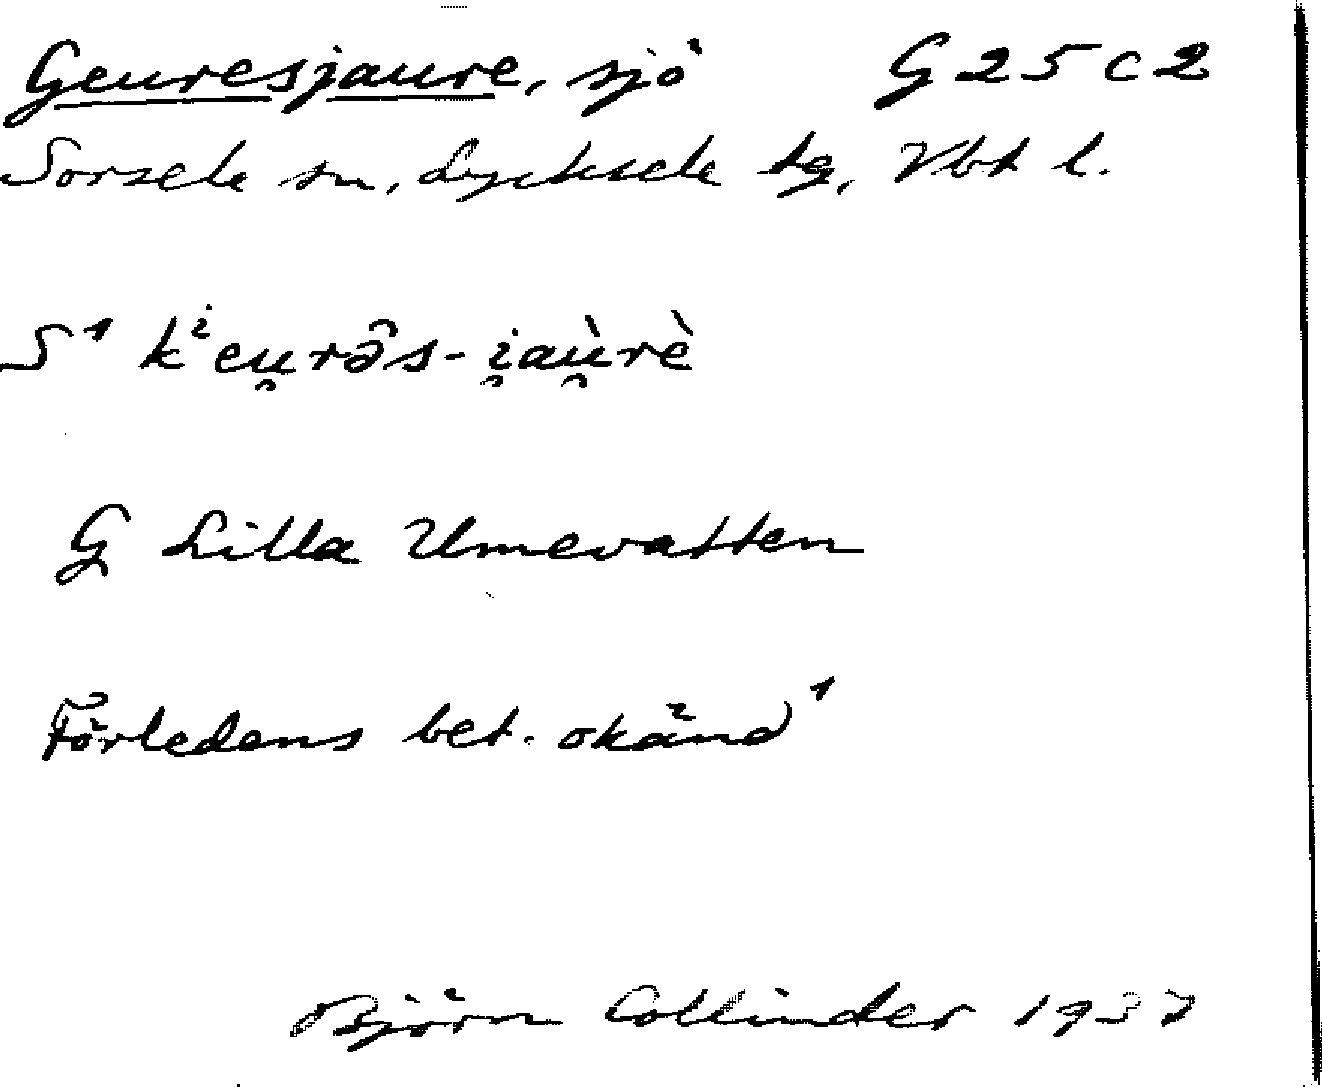 Geuresjaure, sjö G 25 c 2
Sorsele sn, Lycksele tg, Vbt l.
S¹ kⁱeu̯rə̂s-i̯aù̯rè
G Lilla Umevatten
Förledens bet. okänd¹
Björn Collinder 1937